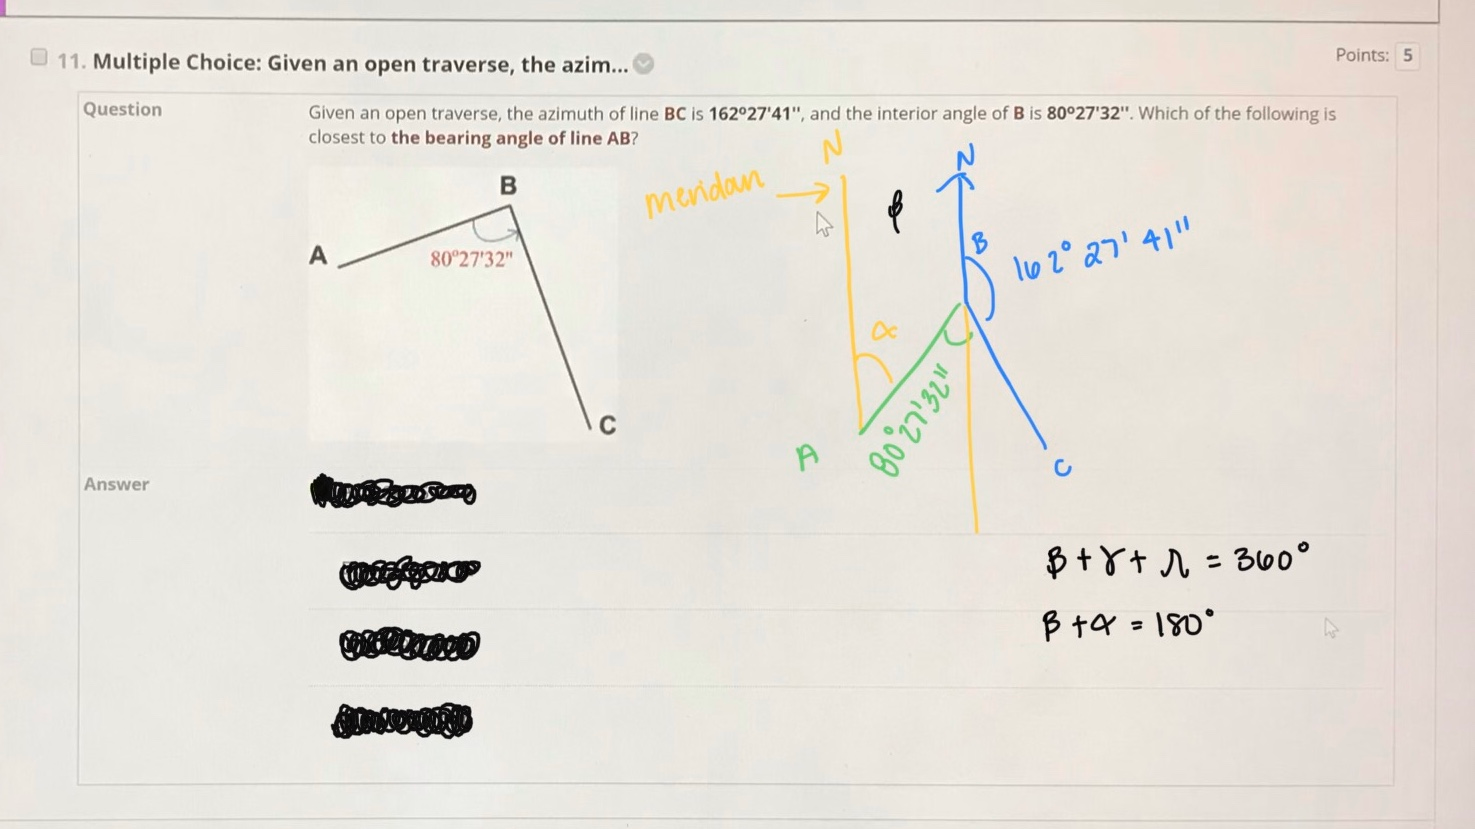 11. Multiple Choice: Given an open traverse, the azim...
Points: 5
Question
Given an open traverse, the azimuth of line BC is 162º27'41", and the interior angle of B is 80º27'32". Which of the following is
closest to the bearing angle of line AB?
N
N
meridan
β
B
B
162° 27' 41"
A
80º27'32"
α
80°27'32"
A
C
C
Answer
β + γ + Ω = 360°
β + α = 180°